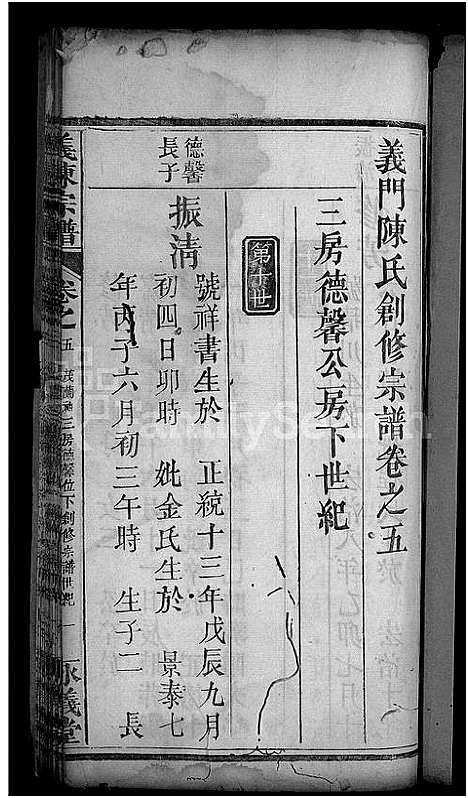 義門陳氏創修宗譜卷之五
三房德馨公房下世紀
第十世
德馨
長子
振清
號祥書生於 正統十三年戊辰九月
初四日卯時 妣金氏生於 景泰七
年丙子六月初三午時 生子二 長
義陳宗譜
卷之五
三房德馨位下創修宗譜世紀 一
義堂
FamilySearch